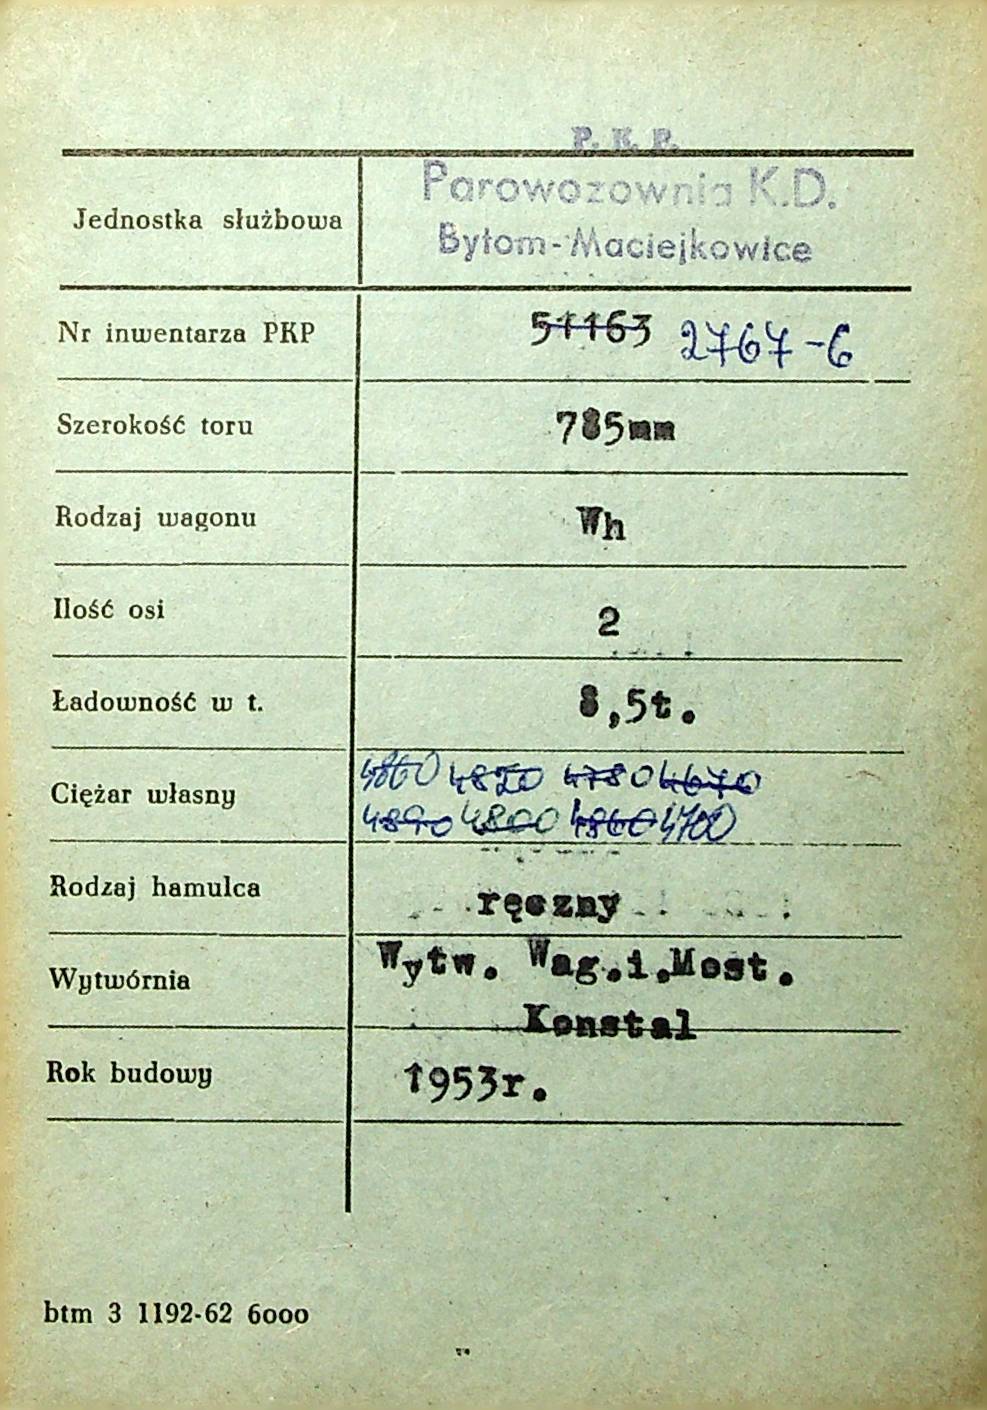 P. K. P.
Parowozownia K.D.
Bytom-Maciejkowice
Jednostka służbowa
Nr inwentarza PKP 51163 2767-6
Szerokość toru 785mm
Rodzaj wagonu Wh
Ilość osi 2
Ładowność w t. 8,5t.
Ciężar własny 4860 4820 4780 4670
4890 4800 4860 4700
Rodzaj hamulca ręczny
Wytwórnia Wytw. Wag.i.Most.
Konstal
Rok budowy 1953r.
btm 3 1192-62 6000